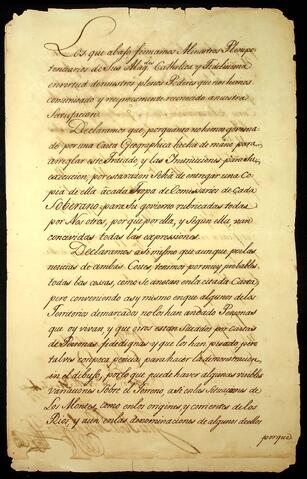 Los que abajo firmamos Ministros Plenipo-
tenciarios de Sus Mag.^s Catholica y Fidelissima
en virtud de nuestros plenos Poderes que nos hemos
comunicado y reciprocamente reconocido a nuestra
Satisfacion.
Declaramos que, por quanto nos hemos governa-
do por una Carta Geographica hecha de mano, para
arreglar este Tratado, y las Instrucciones para su
execucion, por esta razon se ha de entregar una Co-
pia de ella à cada Tropa de Comisarios de Cada
Soberano, para su govierno rubricadas todas
por Nos otros, por que por ella, y Según ella, van
concevidas todas las expresiones.
Declaramos assi mismo que aunque por las
noticias de ambas Cortes, tenemos por muy probables
todas las cosas, como se anotan en la citada Carta
pero conveniendo assy mismo en que algunos de los
Territorios demarcados no los han andado Personas
que oy vivan y que otros estan Sacados por Cartas
de Personas fidedignas y que los han pisado, pero
tal vez con poca pericia para hacer la demonstracion
en el dibuxo, por lo que puede haver algunas visibles
variaciones Sobre el Terreno, assi en las Situaciones de
Los Montes, como en los origenes y corrientes de los
Rios, y aun en las denominaciones de algunos de ellos
porque